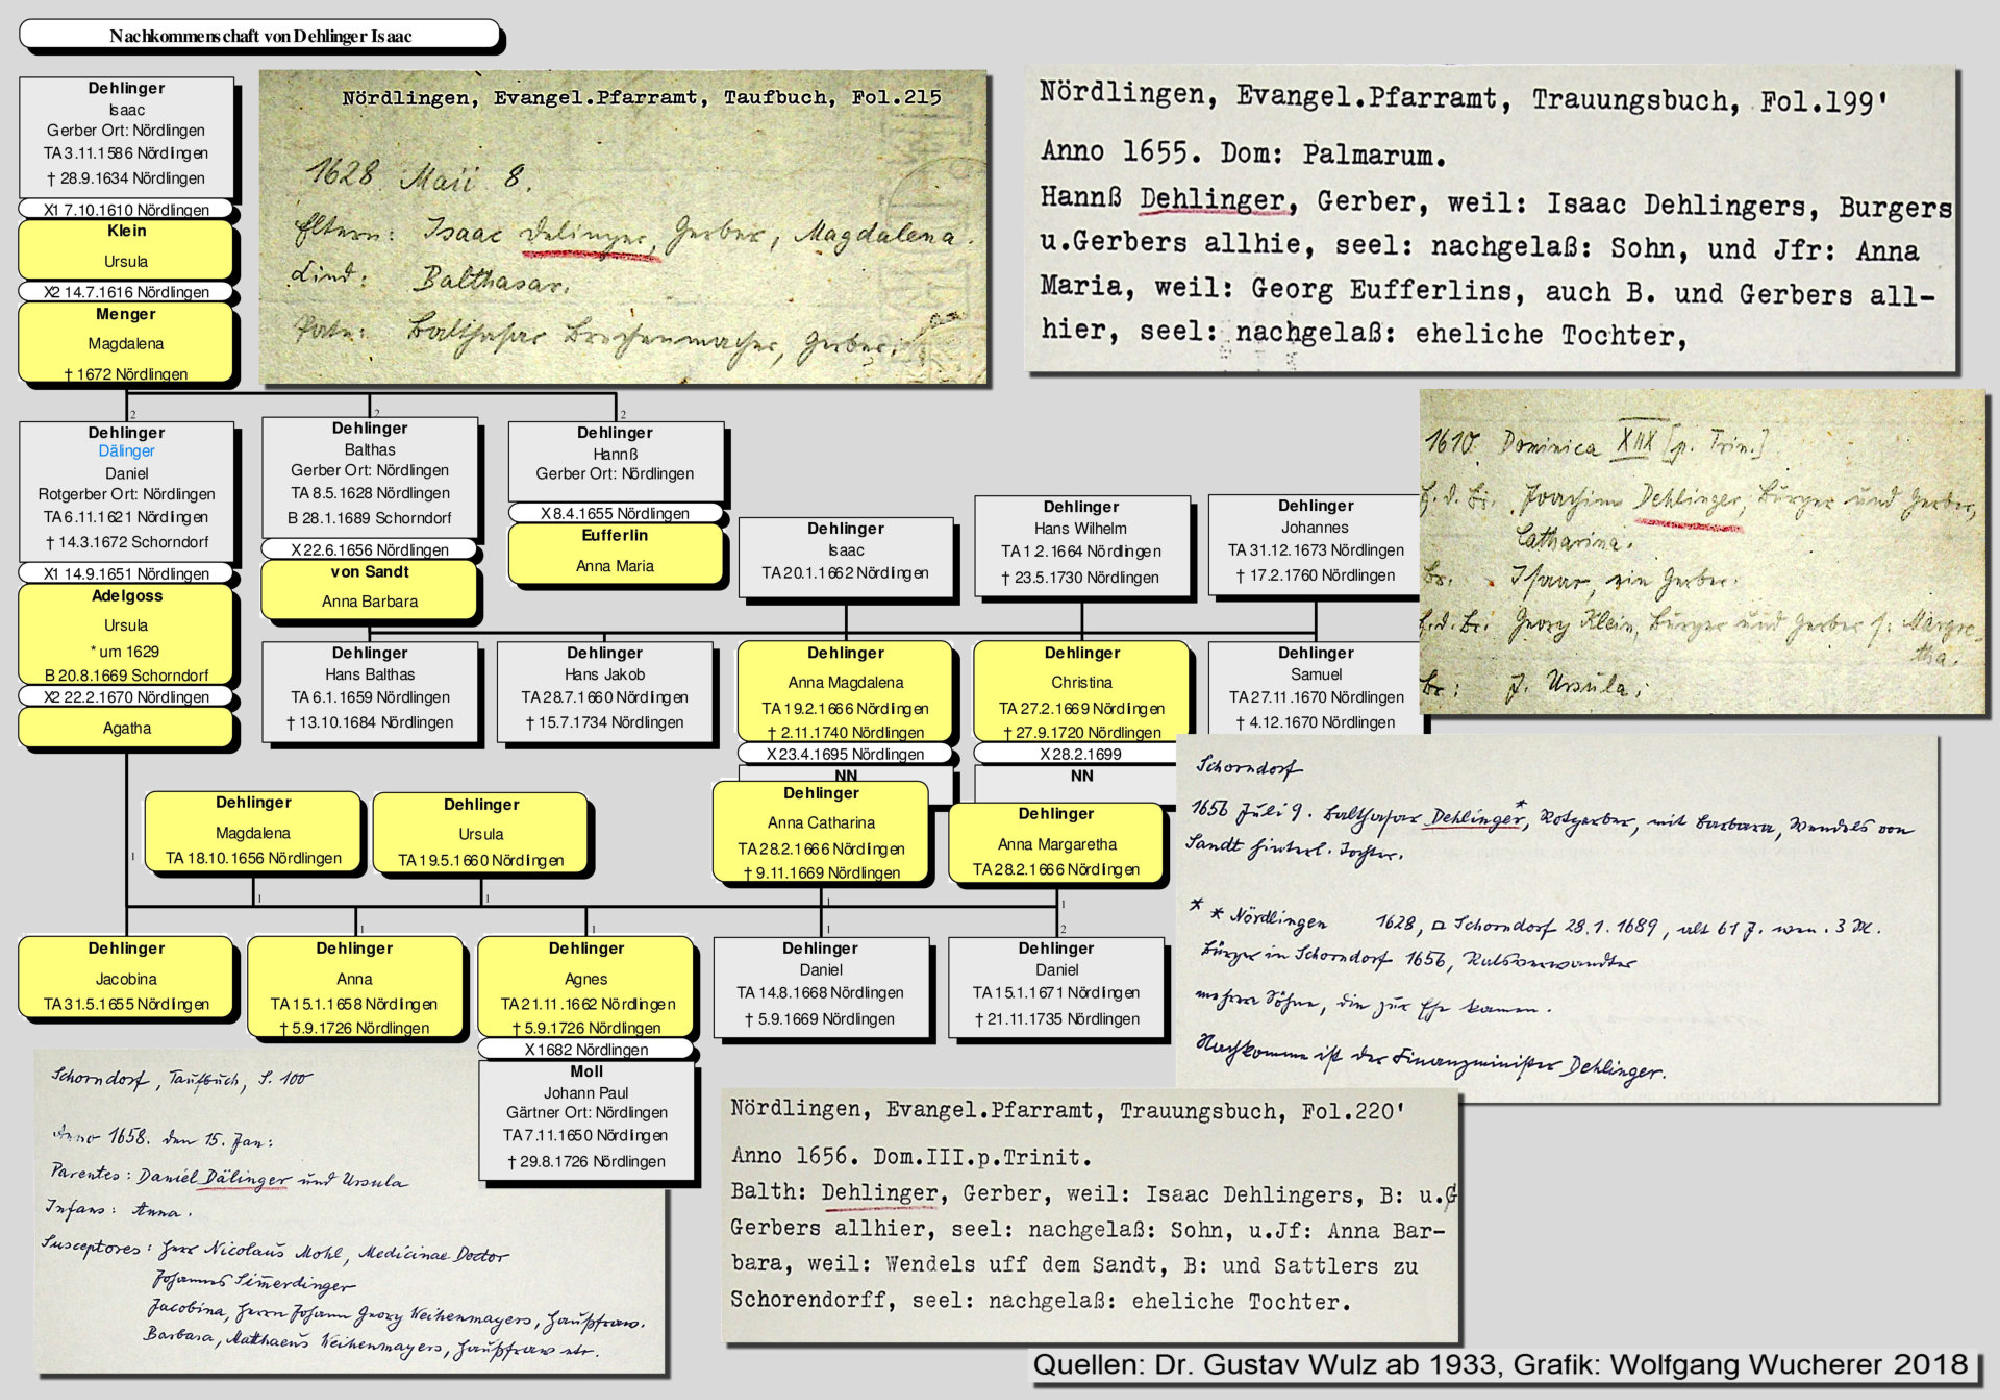 Nachkommenschaft von Dehlinger Isaac
Dehlinger
Isaac
Gerber Ort: Nördlingen
TA 3.11.1586 Nördlingen
† 28.9.1634 Nördlingen
X1 7.10.1610 Nördlingen
Klein
Ursula
X2 14.7.1616 Nördlingen
Menger
Magdalena
† 1672 Nördlingen
Nördlingen, Evangel.Pfarramt, Taufbuch, Fol.215
1628 Maii 8.
Eltern: Isaac Delinger, Gerber, Magdalena.
Kind: Balthasar.
Pate: Balthasar Brechenmacher, Gerber.
Nördlingen, Evangel.Pfarramt, Trauungsbuch, Fol.199'
Anno 1655. Dom: Palmarum.
Hannß Dehlinger, Gerber, weil: Isaac Dehlingers, Burgers
u.Gerbers allhie, seel: nachgelaß: Sohn, und Jfr: Anna
Maria, weil: Georg Eufferlins, auch B. und Gerbers all-
hier, seel: nachgelaß: eheliche Tochter,
2
2
2
Dehlinger
Dälinger
Daniel
Rotgerber Ort: Nördlingen
TA 6.11.1621 Nördlingen
† 14.3.1672 Schorndorf
X1 14.9.1651 Nördlingen
Adelgoss
Ursula
* um 1629
B 20.8.1669 Schorndorf
X2 22.2.1670 Nördlingen
Agatha
Dehlinger
Balthas
Gerber Ort: Nördlingen
TA 8.5.1628 Nördlingen
B 28.1.1689 Schorndorf
X 22.6.1656 Nördlingen
von Sandt
Anna Barbara
Dehlinger
Hannß
Gerber Ort: Nördlingen
X 8.4.1655 Nördlingen
Eufferlin
Anna Maria
Dehlinger
Isaac
TA 20.1.1662 Nördlingen
Dehlinger
Hans Wilhelm
TA 1.2.1664 Nördlingen
† 23.5.1730 Nördlingen
Dehlinger
Johannes
TA 31.12.1673 Nördlingen
† 17.2.1760 Nördlingen
1610. Dominica XIIX [p. Trin.]
H. d. Br. Joachim Dehlinger, Bürger und Gerber,
Catharina.
Br. Isaac, ein Gerber.
H. d. Br. Georg Klein, Bürger und Gerber f: Margre-
tha.
Br: J. Ursula;
Dehlinger
Hans Balthas
TA 6.1.1659 Nördlingen
† 13.10.1684 Nördlingen
Dehlinger
Hans Jakob
TA 28.7.1660 Nördlingen
† 15.7.1734 Nördlingen
Dehlinger
Anna Magdalena
TA 19.2.1666 Nördlingen
† 2.11.1740 Nördlingen
X 23.4.1695 Nördlingen
NN
Dehlinger
Christina
TA 27.2.1669 Nördlingen
† 27.9.1720 Nördlingen
X 28.2.1699
NN
Dehlinger
Samuel
TA 27.11.1670 Nördlingen
† 4.12.1670 Nördlingen
Schorndorf
1656 Juli 9. Balthasar Dehlinger*, Rotgerber, mit Barbara, Wendels von
Sandt hinterl. Tochter.
* * Nördlingen 1628, □ Schorndorf 28.1.1689, alt 61 J. wen. 3 M.
Bürger in Schorndorf 1656, Ratsverwandter
mehrere Söhne, die zur Ehe kamen.
Nachkomme ist der Finanzminister Dehlinger.
1
Dehlinger
Magdalena
TA 18.10.1656 Nördlingen
1
Dehlinger
Ursula
TA 19.5.1660 Nördlingen
1
Dehlinger
Anna Catharina
TA 28.2.1666 Nördlingen
† 9.11.1669 Nördlingen
1
Dehlinger
Anna Margaretha
TA 28.2.1666 Nördlingen
1
1
1
1
2
Dehlinger
Jacobina
TA 31.5.1655 Nördlingen
Dehlinger
Anna
TA 15.1.1658 Nördlingen
† 5.9.1726 Nördlingen
Dehlinger
Agnes
TA 21.11.1662 Nördlingen
† 5.9.1726 Nördlingen
X 1682 Nördlingen
Moll
Johann Paul
Gärtner Ort: Nördlingen
TA 7.11.1650 Nördlingen
† 29.8.1726 Nördlingen
Dehlinger
Daniel
TA 14.8.1668 Nördlingen
† 5.9.1669 Nördlingen
Dehlinger
Daniel
TA 15.1.1671 Nördlingen
† 21.11.1735 Nördlingen
Schorndorf, Taufbuch, S. 100
Anno 1658. den 15. Jan:
Parentes: Daniel Dälinger und Ursula
Infans: Anna.
Susceptores: Herr Nicolaus Mohl, Medicinae Doctor
Johannes Simerdinger
Jacobina, Herrn Johann Georg Keihenmayers, Haußfraw.
Barbara, Matthaeus Keihenmayers, Haußfraw etc.
Nördlingen, Evangel.Pfarramt, Trauungsbuch, Fol.220'
Anno 1656. Dom.III.p.Trinit.
Balth: Dehlinger, Gerber, weil: Isaac Dehlingers, B: u.G
Gerbers allhier, seel: nachgelaß: Sohn, u.Jf: Anna Bar-
bara, weil: Wendels uff dem Sandt, B: und Sattlers zu
Schorendorff, seel: nachgelaß: eheliche Tochter.
Quellen: Dr. Gustav Wulz ab 1933, Grafik: Wolfgang Wucherer 2018